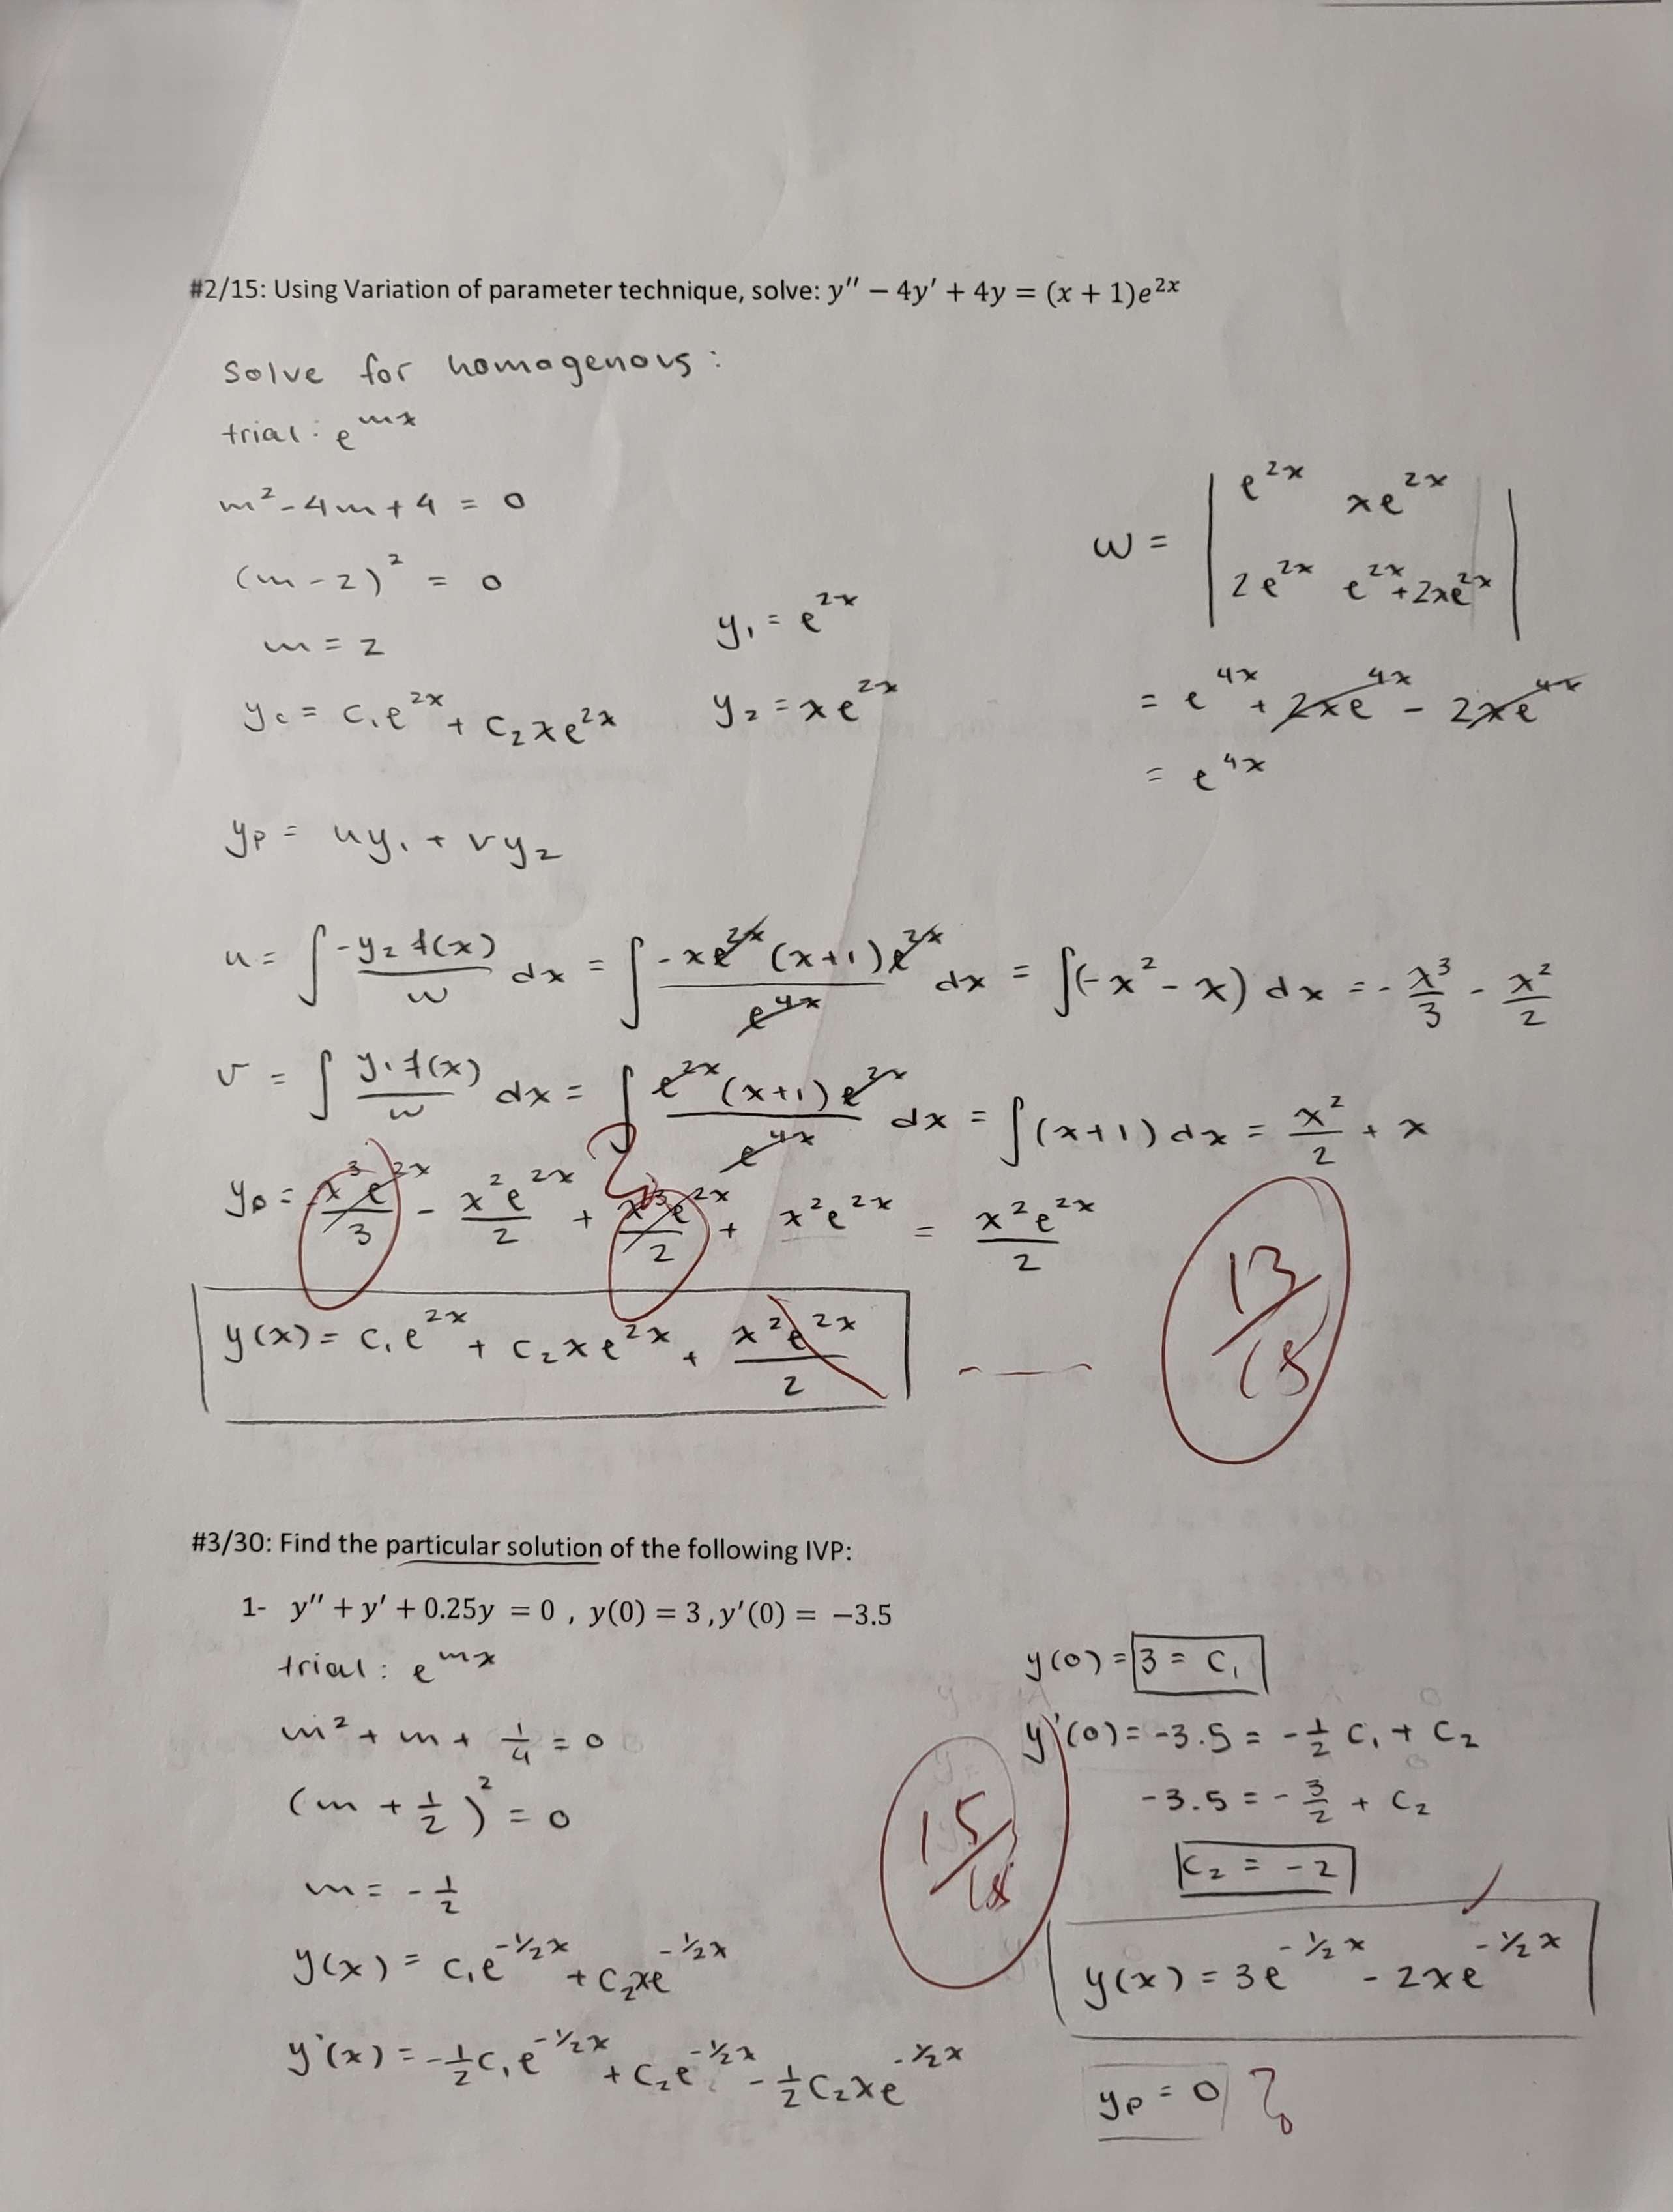 #2/15: Using Variation of parameter technique, solve: y'' − 4y' + 4y = (x + 1)e^{2x}
Solve for homagenous:
trial: e^{mx}
m² - 4m + 4 = 0
(m - 2)² = 0
m = 2
y_c = c₁e^{2x} + c₂xe^{2x}
y₁ = e^{2x}
y₂ = xe^{2x}
W = | e^{2x} xe^{2x} |
| 2e^{2x} e^{2x} + 2xe^{2x} |
= e^{4x} + 2xe^{4x} - 2xe^{4x}
= e^{4x}
y_p = uy₁ + vy₂
u = ∫ -y₂f(x)/W dx = ∫ -xe^{2x}(x+1)e^{2x}/e^{4x} dx = ∫(-x² - x) dx = -x³/3 - x²/2
v = ∫ y₁f(x)/W dx = ∫ e^{2x}(x+1)e^{2x}/e^{4x} dx = ∫(x+1) dx = x²/2 + x
y_p = -x³e^{2x}/3 - x²e^{2x}/2 + x³e^{2x}/2 + x²e^{2x} = x²e^{2x}/2
y(x) = c₁e^{2x} + c₂xe^{2x} + x²e^{2x}/2
13/15
#3/30: Find the particular solution of the following IVP:
1- y'' + y' + 0.25y = 0 , y(0) = 3 , y'(0) = −3.5
trial: e^{mx}
m² + m + 1/4 = 0
(m + 1/2)² = 0
m = -1/2
y(x) = c₁e^{-1/2x} + c₂xe^{-1/2x}
y'(x) = -1/2c₁e^{-1/2x} + c₂e^{-1/2x} - 1/2c₂xe^{-1/2x}
15/15
y(0) = 3 = c₁
y'(0) = -3.5 = -1/2 c₁ + c₂
-3.5 = -3/2 + c₂
c₂ = -2
y(x) = 3e^{-1/2x} - 2xe^{-1/2x}
y_p = 0 ?